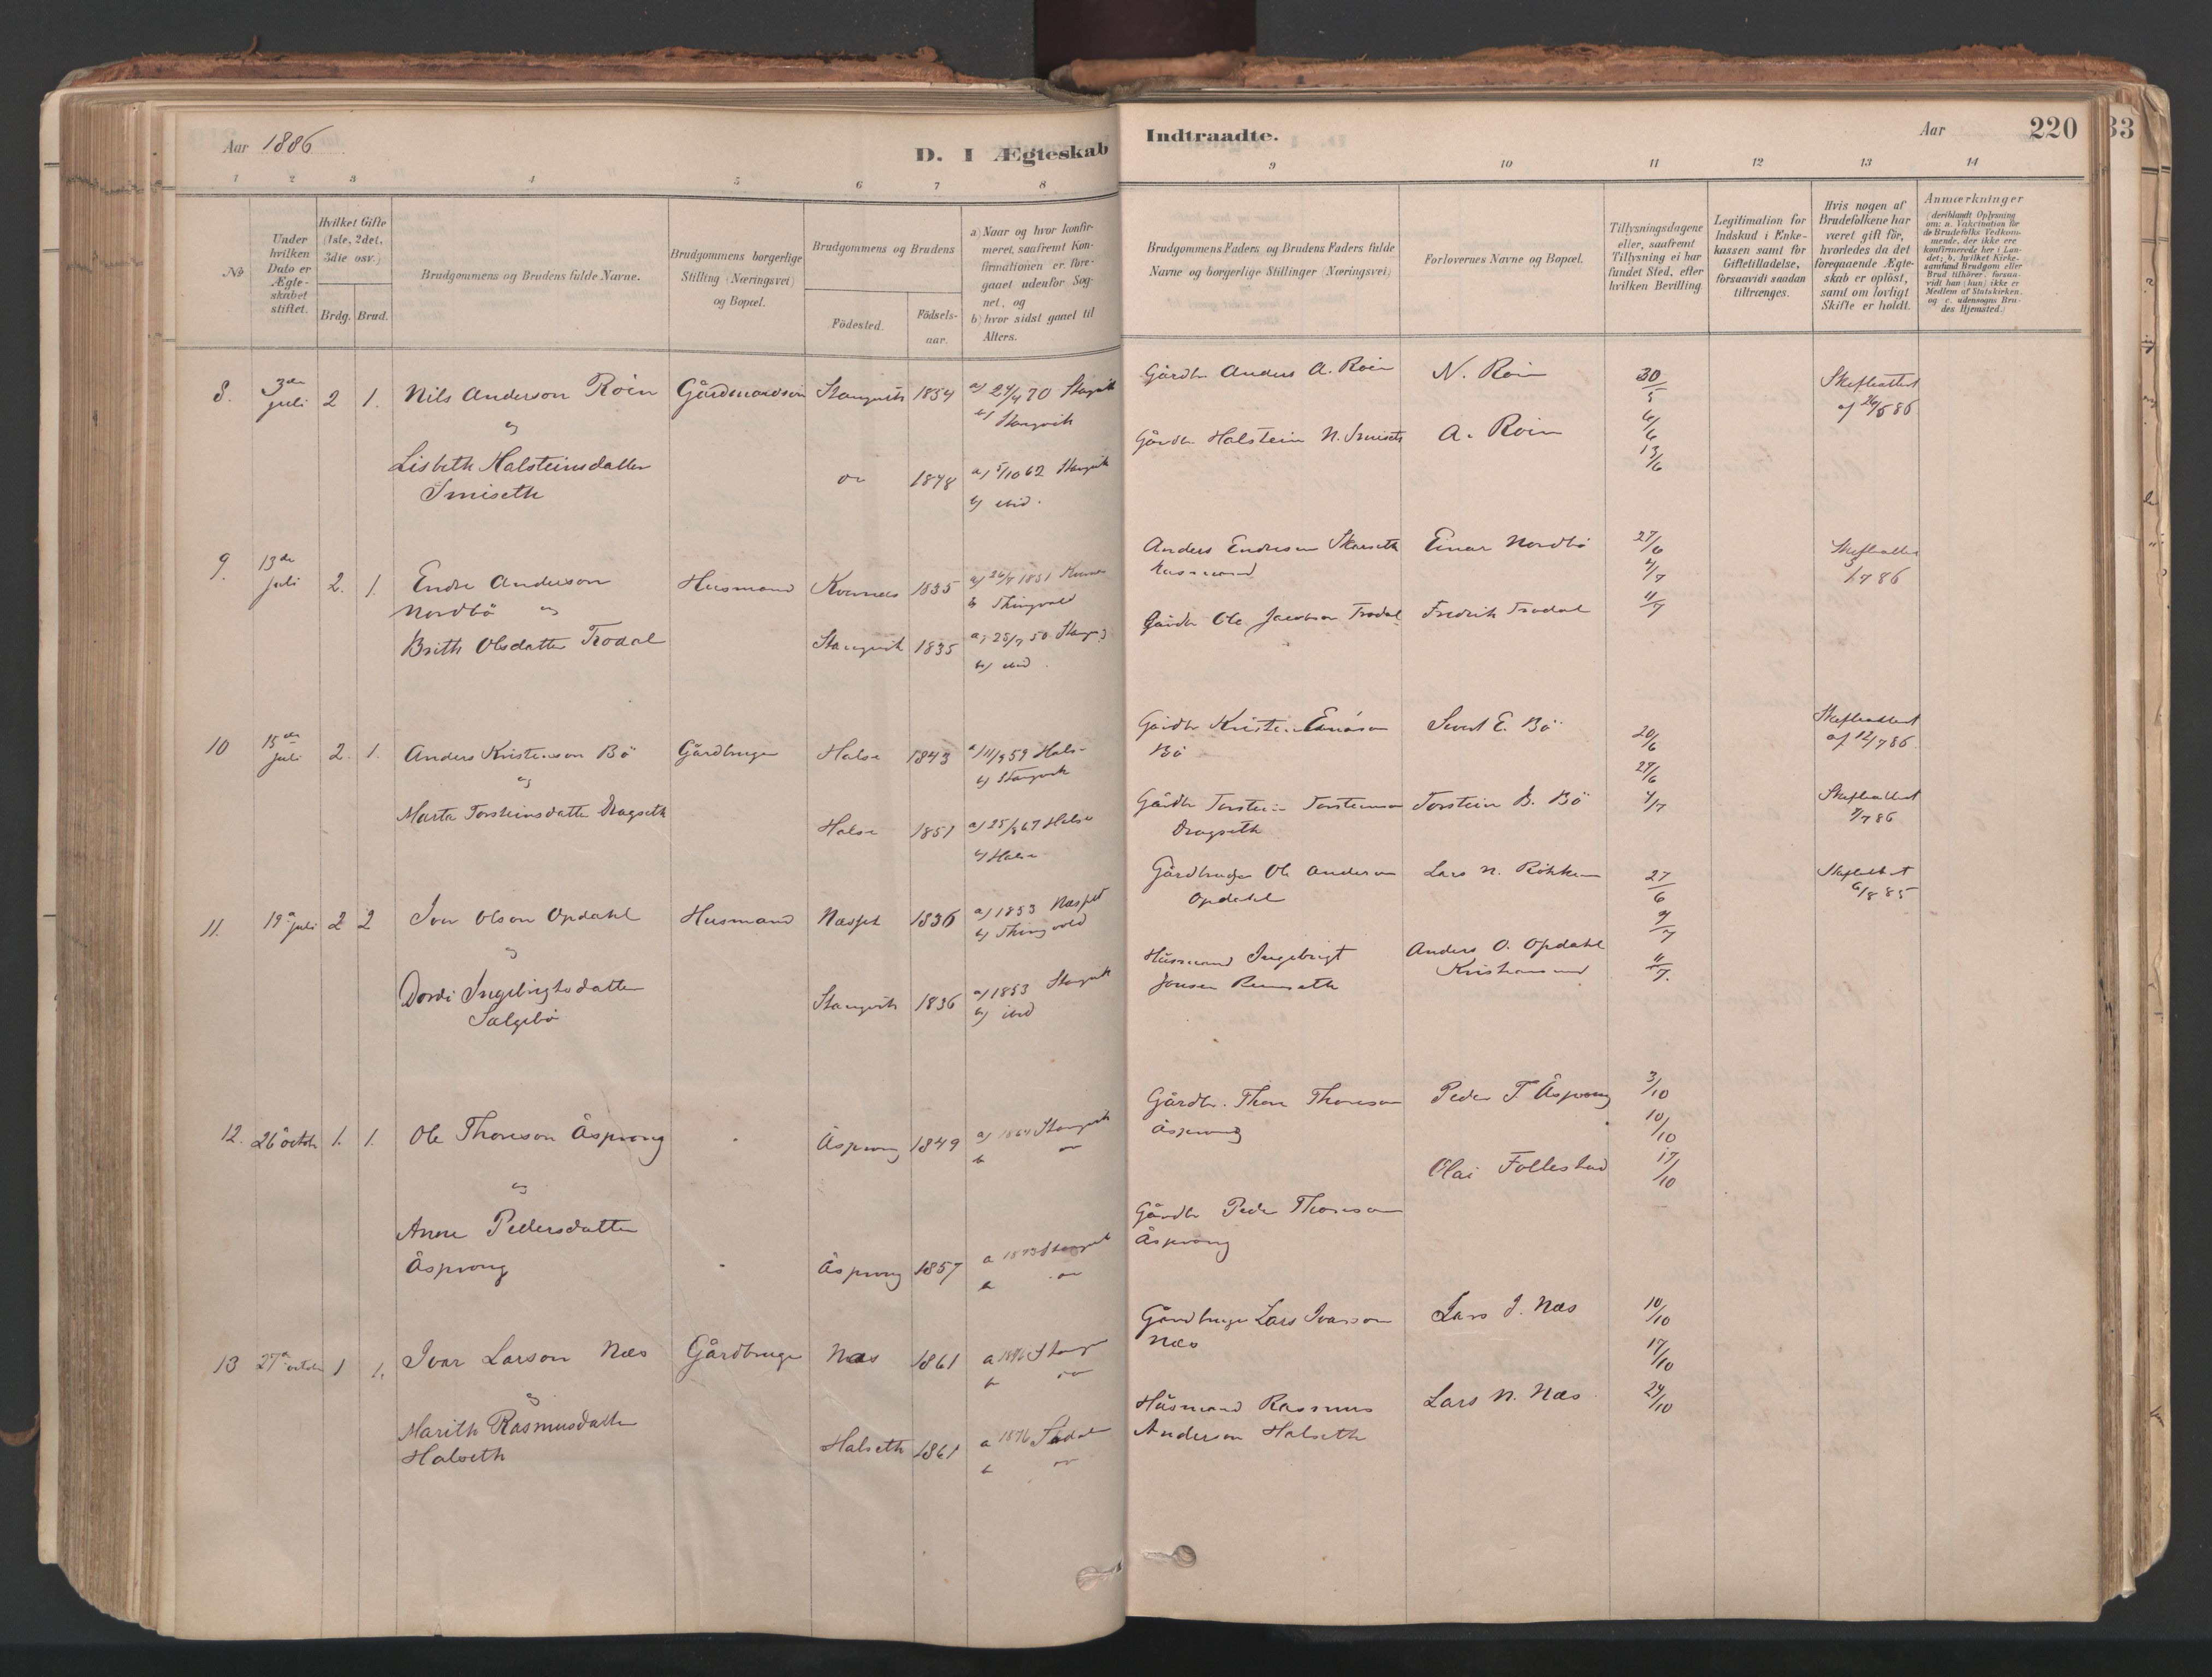 Aar 1886
D. I Ægteskab
Indtraadte.
Aar
220
33
1 2 3 4 5 6 7 8 9 10 11 12 13 14
No
Under hvilken Dato er Ægteskabet stiftet.
Hvilket Gifte (1ste, 2det, 3die osv.)
Brdg. Brud.
Brudgommens og Brudens fulde Navne.
Brudgommens borgerlige Stilling (Næringsvei) og Bopæl.
Brudgommens og Brudens
Födested.
Födselsaar.
a) Naar og hvor konfirmeret, saafremt Konfirmationen er foregaaet udenfor Sognet, og
b) hvor sidst gaaet til Alters.
Brudgommens Faders og Brudens Faders fulde Navne og borgerlige Stillinger (Næringsvei)
Forlovernes Navne og Bopæl.
Tillysningsdagene eller, saafremt Tillysning ei har fundet Sted, efter hvilken Bevilling.
Legitimation for Indskud i Enkekassen samt for Giftetilladelse, forsaavidt saadan tiltrænges.
Hvis nogen af Brudefolkene har været gift før, hvorledes da det foregaaende Ægteskab er oplöst, samt om lovligt Skifte er holdt.
Anmærkninger
(deriblandt Oplysning om: a. Vakcination for de Brudefolks Vedkommende, der ikke ere konfirmerede her i Landet; b. hvilket Kirkesamfund Brudgom eller Brud tilhörer, forsaavidt han (hun) ikke er Medlem af Statskirken, og c. udensogns Brudes Hjemsted.)
8. 3de juli 2 1. Nils Anderson Röen Gårdmandsön Stangvik 1854 a) 24/4 70 Stangvik
b) Stangvik
og
Lisbeth Halsteinsdatter
Smiseth
do 1848 a) 5/10 62 Stangvik
b) ibid.
Gårdbr Anders A. Röen N. Röen 30/5 Skifteattest
af 26/5 86
Gårdbr Halstein N. Smiseth A. Röen 6/6
13/6
9. 13de juli 2. 1. Endre Anderson
Nordbö og
Husmand Kvernes 1835
b Thingvold
Brith Olsdatter Trodal Stangvik 1835
b) ibid.
Anders Endreson Skarseth Einar Nordbö 27/6 Skifteattest
Husmand 4/7 3/7 86
Gårdbr Ole Jacobson Trodal Fredrik Trodal 11/7
10 15de juli 2. 1. Anders Kristenson Bö Gårdbruger Halse 1843
b) Stangvik
og
Marta Torsteinsdatter Dragseth
Halse 1851 a) 25/8 67 Halse
b) Halse
Gårdbr Kristen Sivert E. Bö 20/6 Skifteattest
Bö af 12/7 86
27/6
Gårdbr Torstein Torsteinson Torstein B. Bö 4/7 Skifteattest
Dragseth 7/7 86
11. 19de juli 2 2 Iver Olson Opdahl Husmand Næsset 1836 a) 1853 Næsset
b) Thingvold
og
Dordi Ingebrigtsdatter
Salgebö
Stangvik 1836 a) 1853 Stangvik
b) ibid
Gårdbruger Ole Anderson Lars N. Röhken 27/6 Skifteattest
Opdahl 6/8 85
Husmand Ingebrigt Anders O. Opdahl 4/7
Jonsen Kristiansund 11/7.
12. 26de octob 1. 1. Ole Thoreson Åsprong Åsprong 1849 a) 1864 Stangvik
b do
og
Anne Pedersdatter
Åsprong Åsprong 1857 a 1873 Stangvik
b do
Gårdbr. Thore Thoreson Peder T Åsprong 3/10
Åsprong 10/10
Olai Follestad 17/10
Gårdbr Peder Thoreson
Åsprong
13 27de octob 1 1. Ivar Larson Næs Gårdbruger Næs 1861 a 1876 Stangv
b do
og
Marith Rasmusdatter
Halseth Halseth 1861 a 1876
b do
Gårdbruger Lars Ivarson Lars J. Næs 10/10
Næs 17/10
Husmand Rasmus Lars N. Næs 24/10
Anderson Halseth